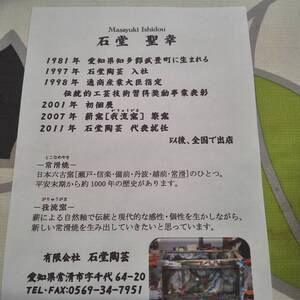 Masayuki Ishidou
石堂 聖幸
1981年 愛知県知多郡武豊町に生まれる
1997年 石堂陶芸 入社
1998年 通商産業大臣指定
伝統的工芸技術習得奨励事業表彰
2001年 初個展
がりゅうがま
2007年 薪窯[我流窯] 築窯
2011年 石堂陶芸 代表就任
以後、全国で出店
とこなめやき
―常滑焼―
日本六古窯[瀬戸・信楽・備前・丹波・越前・常滑]のひとつ。
平安末期から約1000年の歴史があります。
がりゅうがま
―我流窯―
薪による自然釉で伝統と現代的な感性・個性を生かしながら、
新しい常滑焼を生み出していきたいと思っています。
有限会社 石堂陶芸
愛知県常滑市字千代64-20
TEL・FAX:0569-34-7951